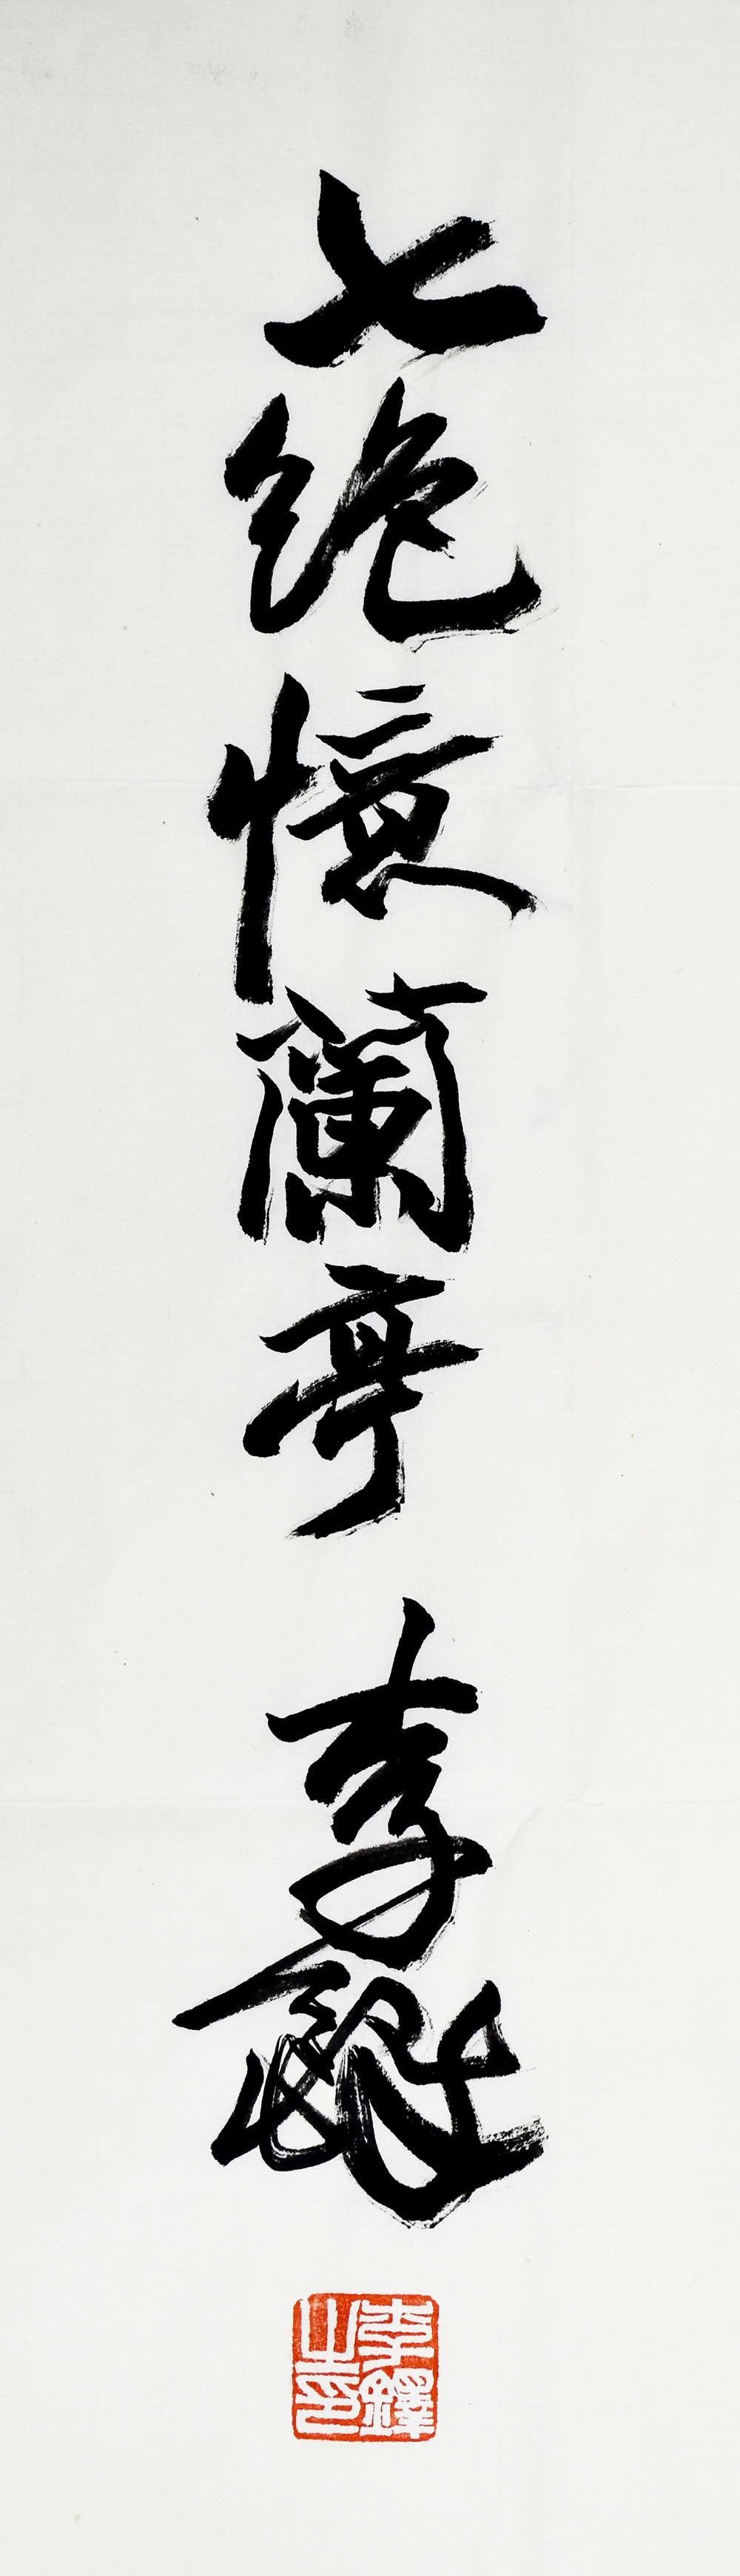 七绝憶蘭亭 李鐸
李鐸之印